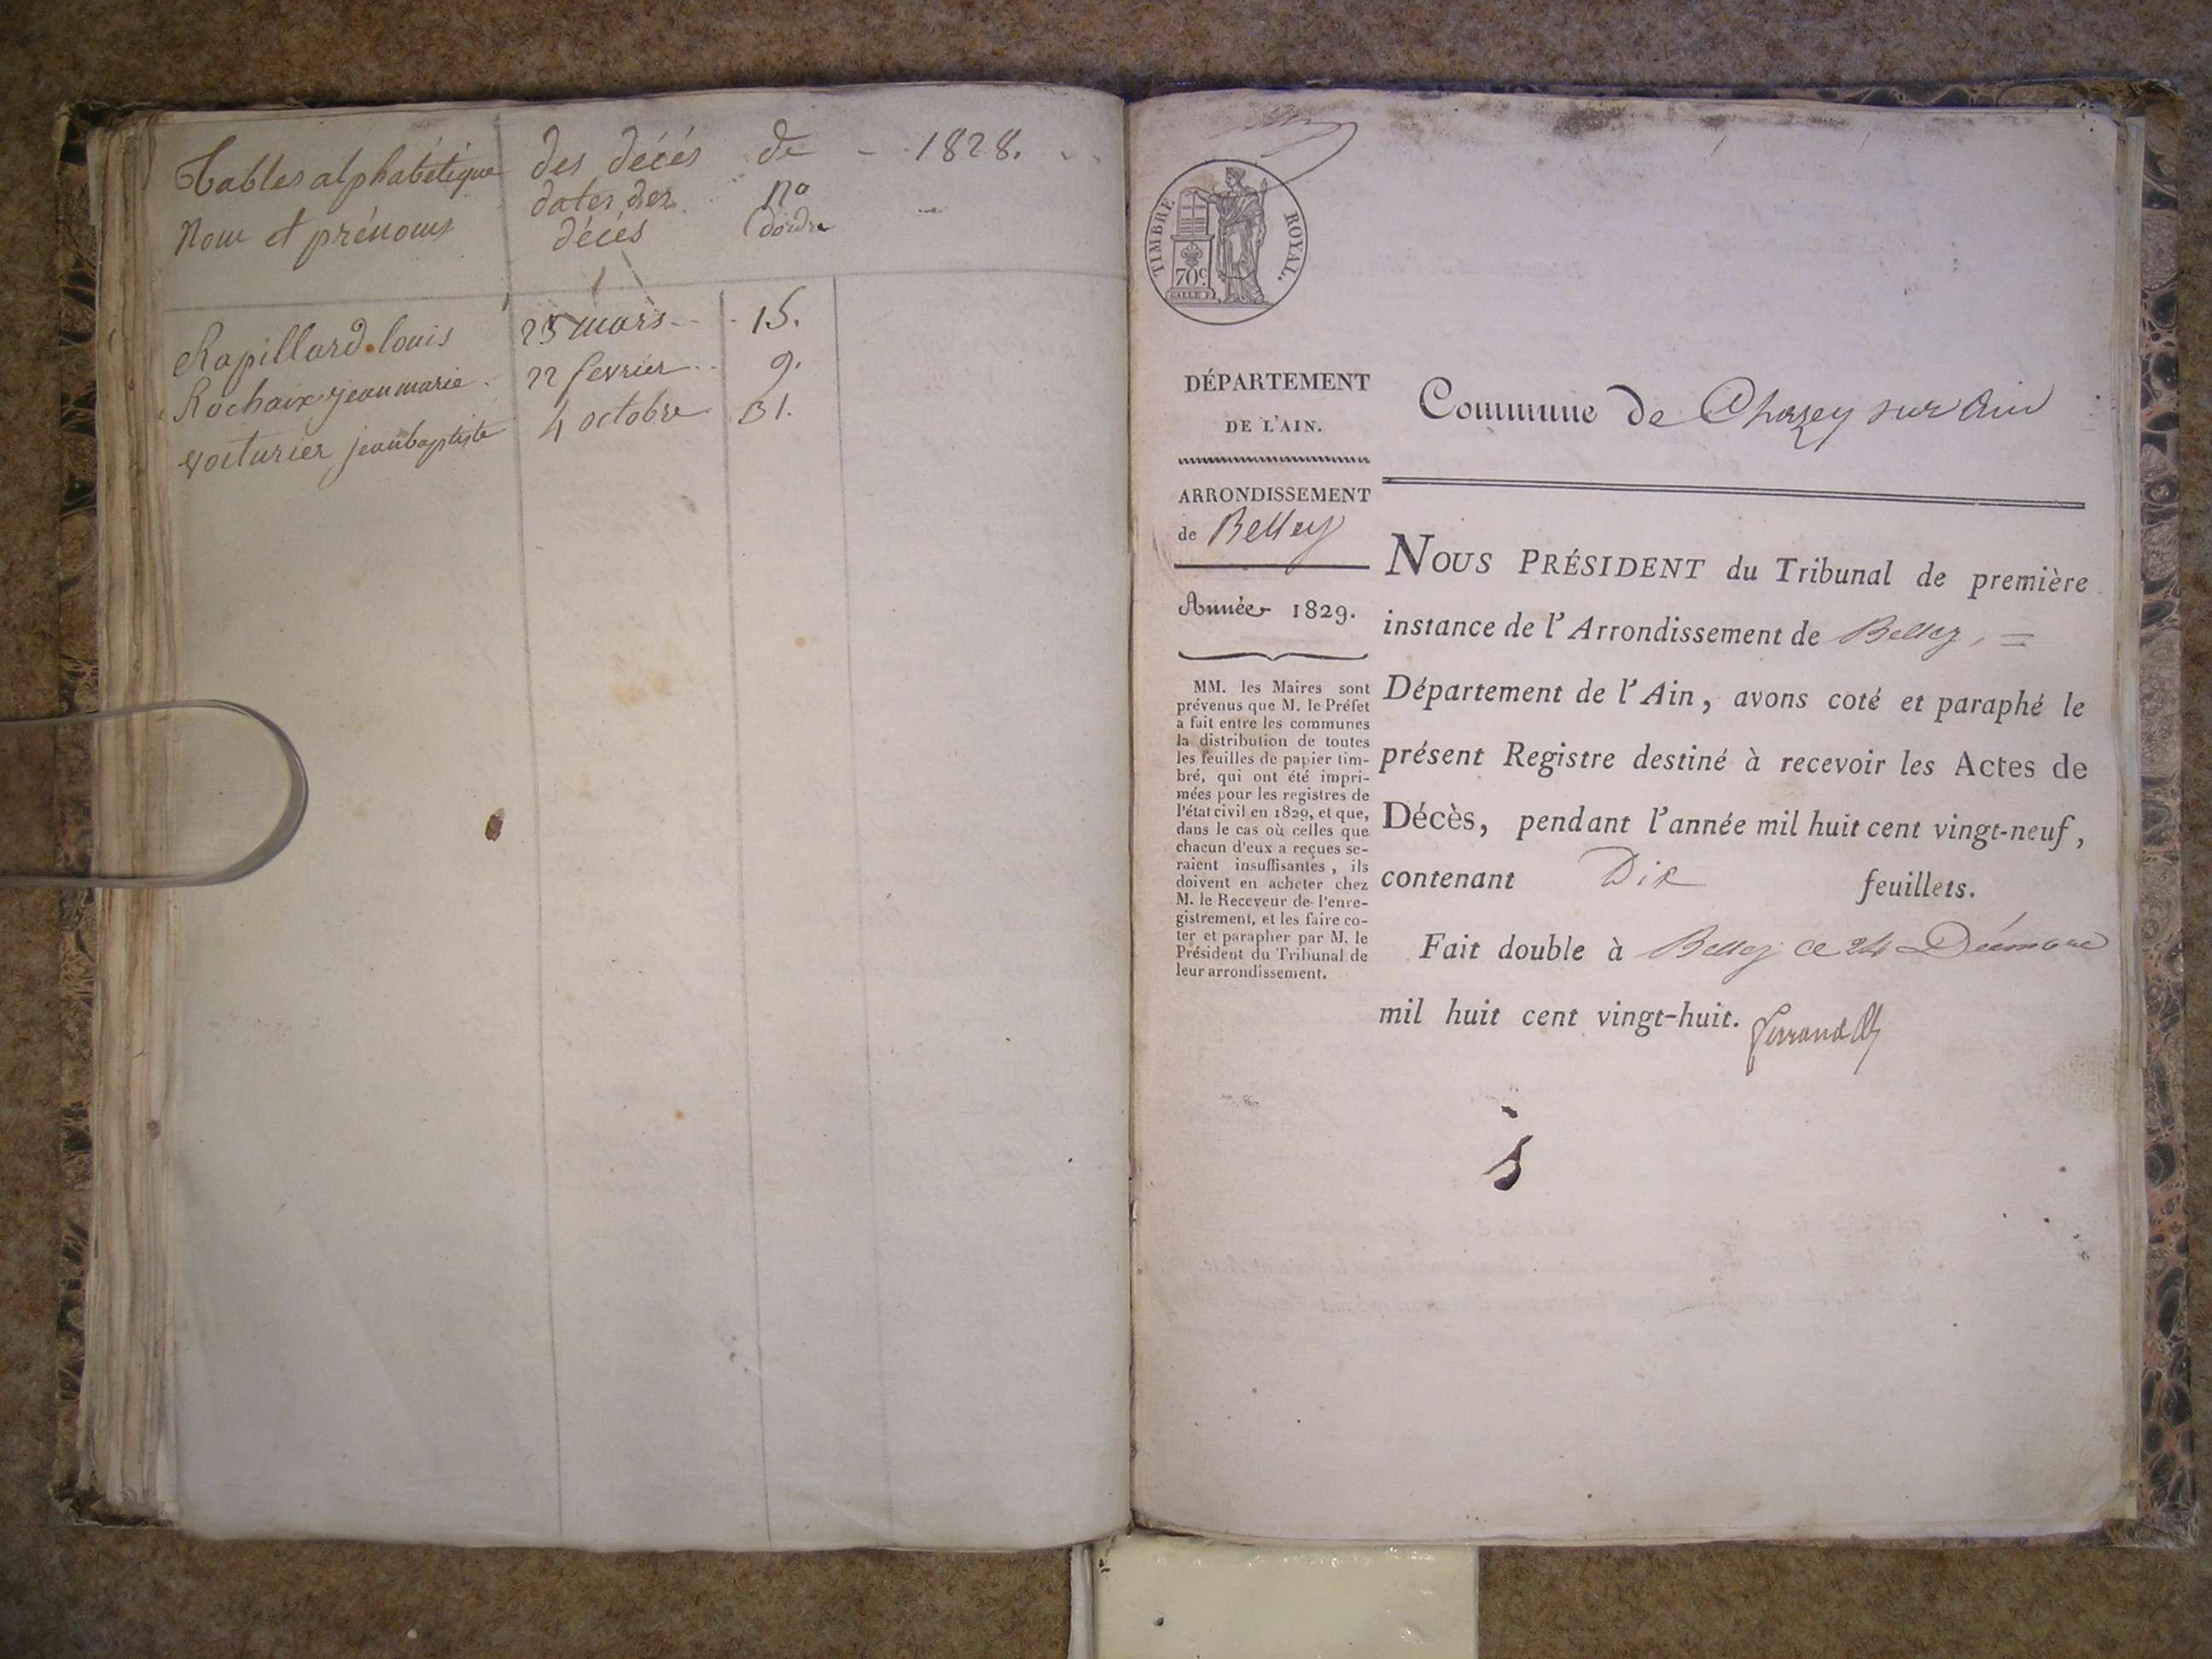 Tables alphabétique des décés de - 1828.
Nom et prénoms
dates des
décés
no
dordre
Rapillard louis 25 mars 15.
Rochaix jean marie 22 fevrier 9.
voiturier jean baptiste 4 octobre 31.
TIMBRE ROYAL.
70c
DÉPARTEMENT
DE L'AIN.
ARRONDISSEMENT
de Belley
Année 1829.
MM. les Maires sont
prévenus que M. le Préfet
a fait entre les communes
la distribution de toutes
les feuilles de papier tim-
bré, qui ont été impri-
mées pour les registres de
l'état civil en 1829, et que,
dans le cas où celles que
chacun d'eux a reçues se-
raient insuffisantes, ils
doivent en acheter chez
M. le Receveur de l'enre-
gistrement, et les faire co-
ter et parapher par M. le
Président du Tribunal de
leur arrondissement.
Commune de Chazey sur Ain
NOUS PRÉSIDENT du Tribunal de première
instance de l'Arrondissement de Belley, =
Département de l'Ain, avons coté et paraphé le
présent Registre destiné à recevoir les Actes de
Décès, pendant l'année mil huit cent vingt-neuf,
contenant Dix feuillets.
Fait double à Belley ce 24 Décembre
mil huit cent vingt-huit.